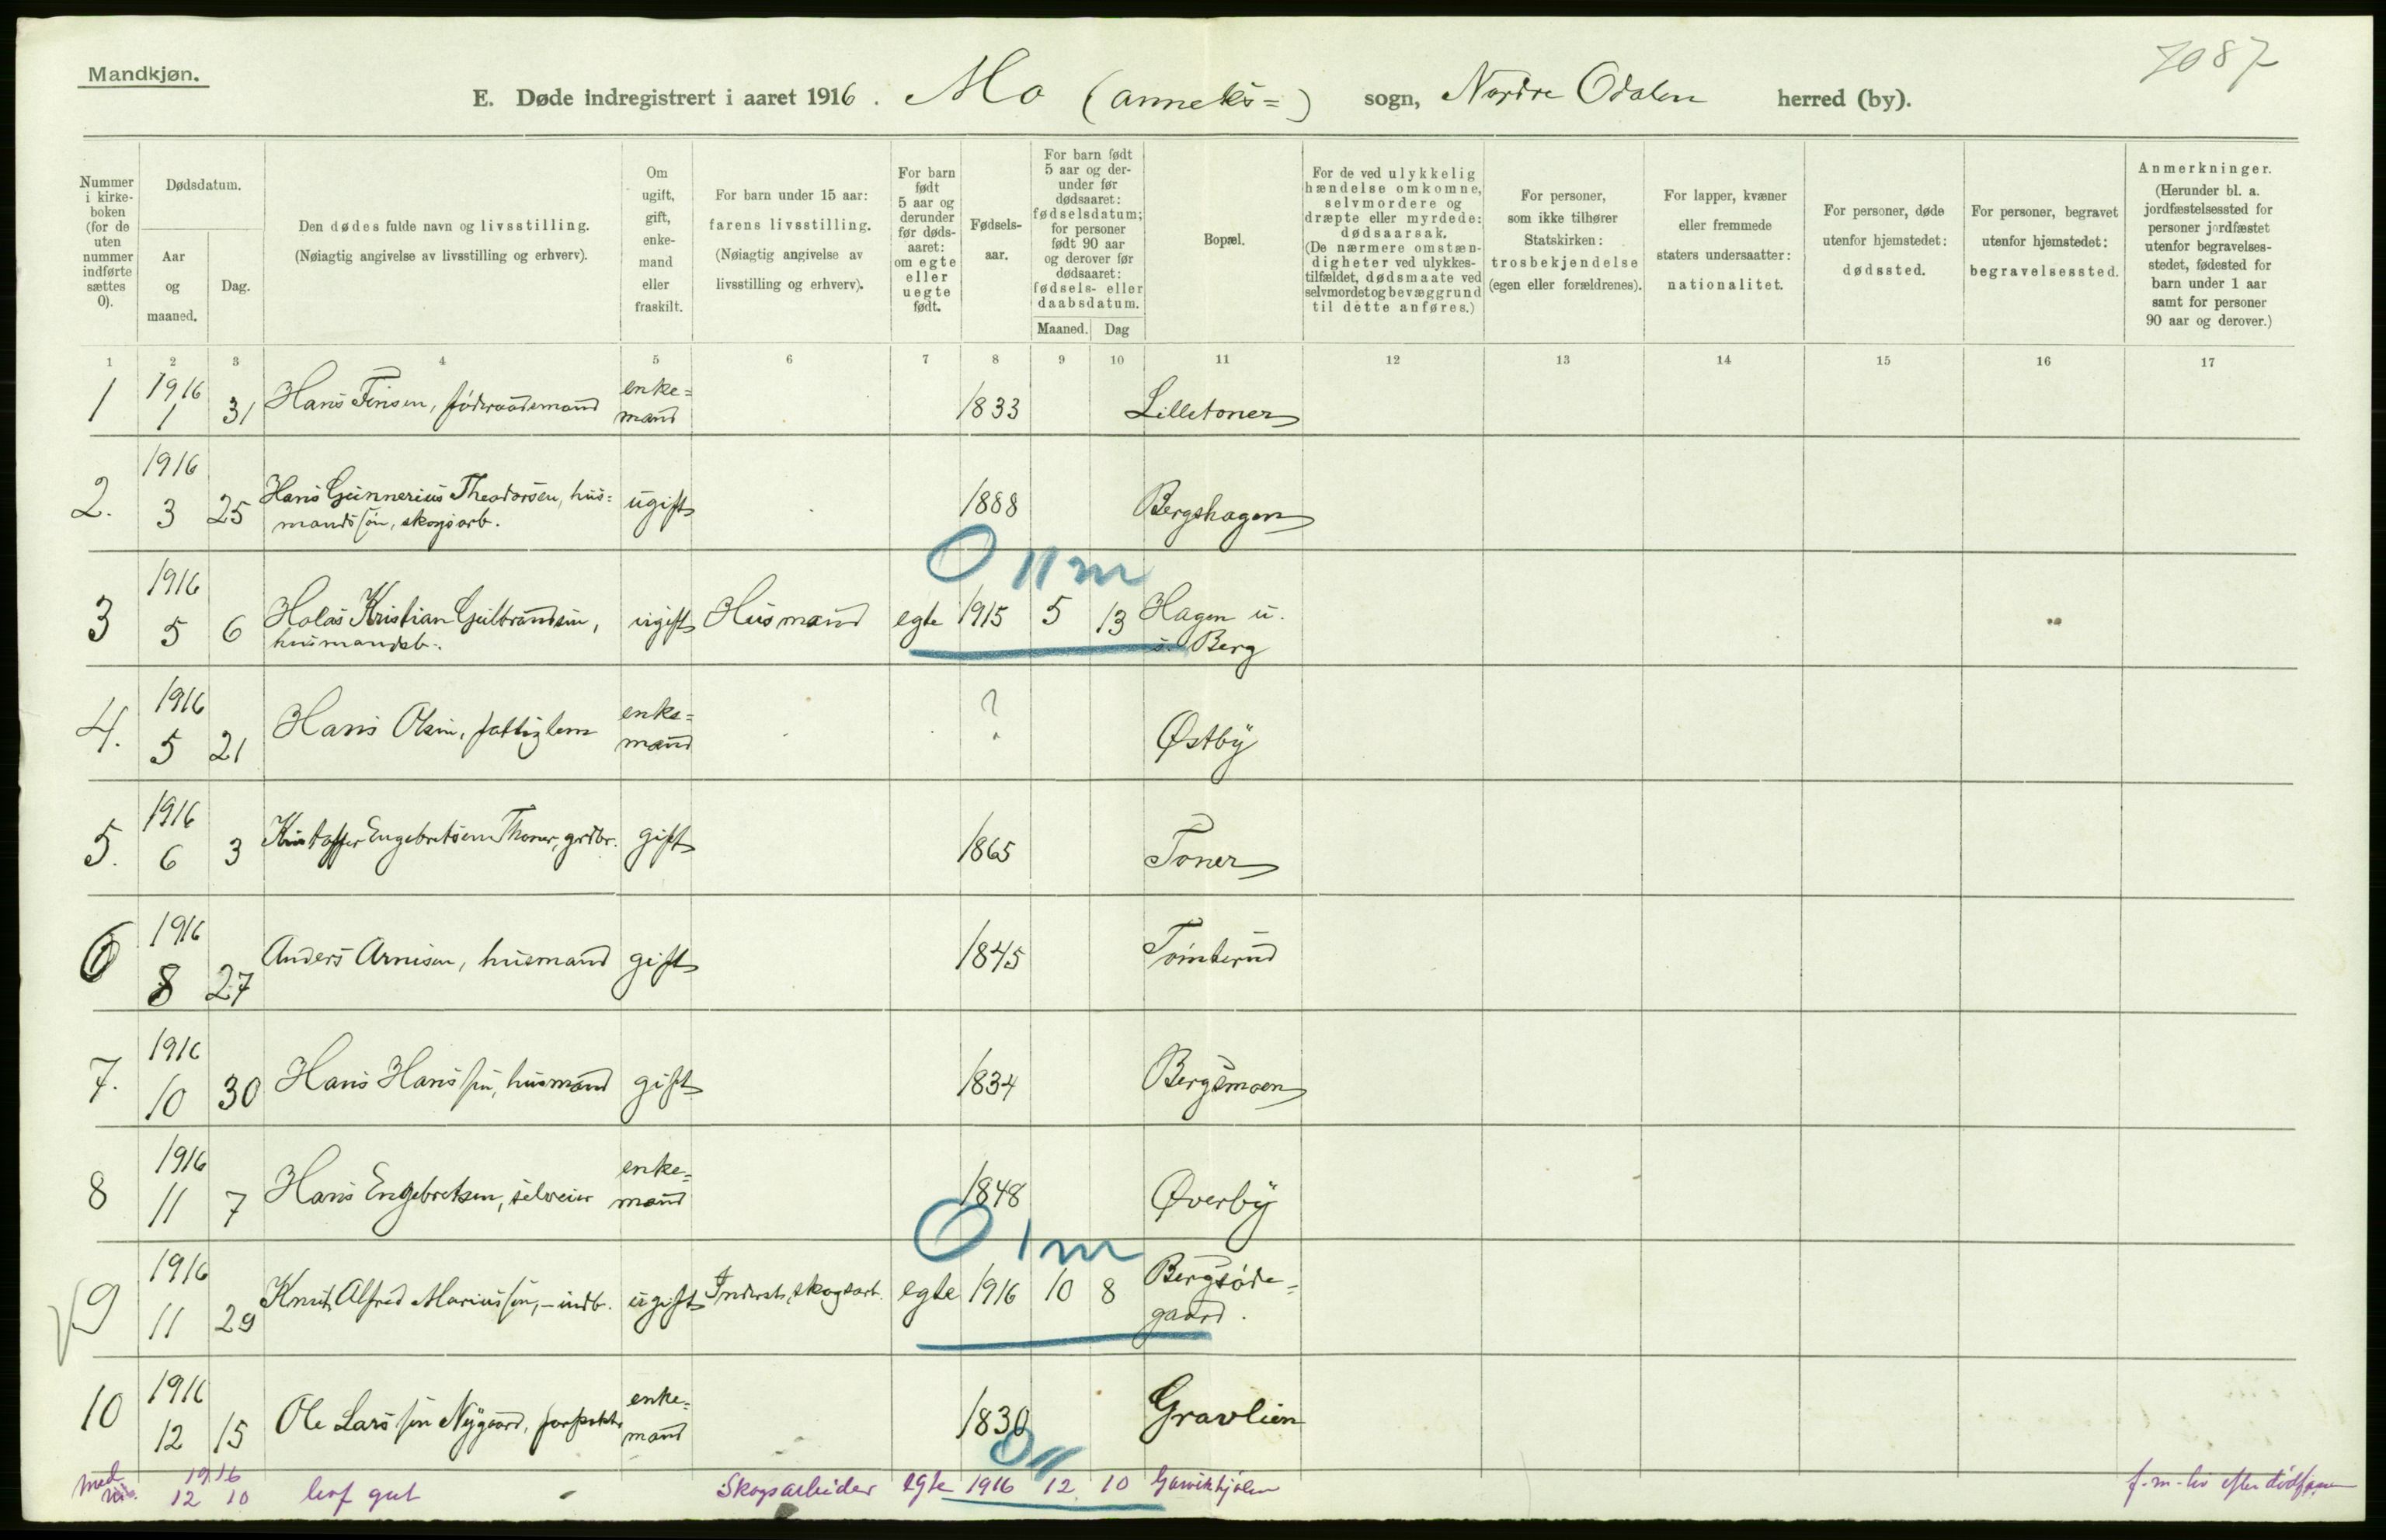 Mandkjøn.
7087
E. Døde indregistrert i aaret 1916. Mo (anneks=) sogn, Nordre Odalen herred (by).
Nummer i kirke-boken (for de uten nummer indførte sættes 0).
Dødsdatum.
Aar og maaned.
Dag.
Den dødes fulde navn og livsstilling.
(Nøiagtig angivelse av livsstilling og erhverv).
Om ugift, gift, enke-mand eller fraskilt.
For barn under 15 aar: farens livsstilling.
(Nøiagtig angivelse av livsstilling og erhverv).
For barn født 5 aar og derunder før døds-aaret: om egte eller uegte født.
Fødsels-aar.
For barn født 5 aar og der-under før dødsaaret: fødselsdatum; for personer født 90 aar og derover før dødsaaret: fødsels- eller daabsdatum.
Maaned. Dag
Bopæl.
For de ved ulykkelig hændelse omkomne, selvmordere og dræpte eller myrdede: dødsaarsak.
(De nærmere omstæn-digheter ved ulykkes-tilfældet, dødsmaate ved selvmordet og bevæggrund til dette anføres.)
For personer, som ikke tilhører Statskirken: trosbekjendelse (egen eller forældrenes).
For lapper, kvæner eller fremmede staters undersaatter: nationalitet.
For personer, døde utenfor hjemstedet: dødssted.
For personer, begravet utenfor hjemstedet: begravelsessted.
Anmerkninger.
(Herunder bl. a. jordfæstelsessted for personer jordfæstet utenfor begravelses-stedet, fødested for barn under 1 aar samt for personer 90 aar og derover.)
1 2 3 4 5 6 7 8 9 10 11 12 13 14 15 16 17
1 1916 1 31 Hans Finsen, føderaadsmand enke=mand 1833 Lilletoner
2. 1916 3 25 Hans Gunnerius Theodorsen, hus=
mandssøn, skogsarb. ugift 1888 Bergshagen
0 11 m
3 1916 5 6 Kristian Gulbrandsen, ugift Husmand egte 1915 5 13 Hagen u.
husmandsb. s. Berg
4. 1916 5 21 Hans Olsen, fattiglem enke=mand ? Østby
5. 1916 6 3 Kristoffer Engebretsen Thoner, grdbr. gift 1865 Toner
6 1916 8 27 Anders Arnesen, husmand gift 1845 Tømterud
7. 1916 10 30 Hans Hanssen, husmand gift 1834 Bergsmoen
8 1916 11 7 Hans Engebretsen, selveier enke=mand 1848 Øverby
0 1 m
9 1916 11 29 Knut Alfred Mariussen, - indb. ugift Inderst, skogsarb. egte 1916 10 8 Bergsøde=
gaard.
10 1916 12 15 Ole Larssen Nygaard, enke=mand 1830 Gravlien
0 11
1916 12 10 gut Skogsarbeider egte 1916 12 10 f. m. liv efter